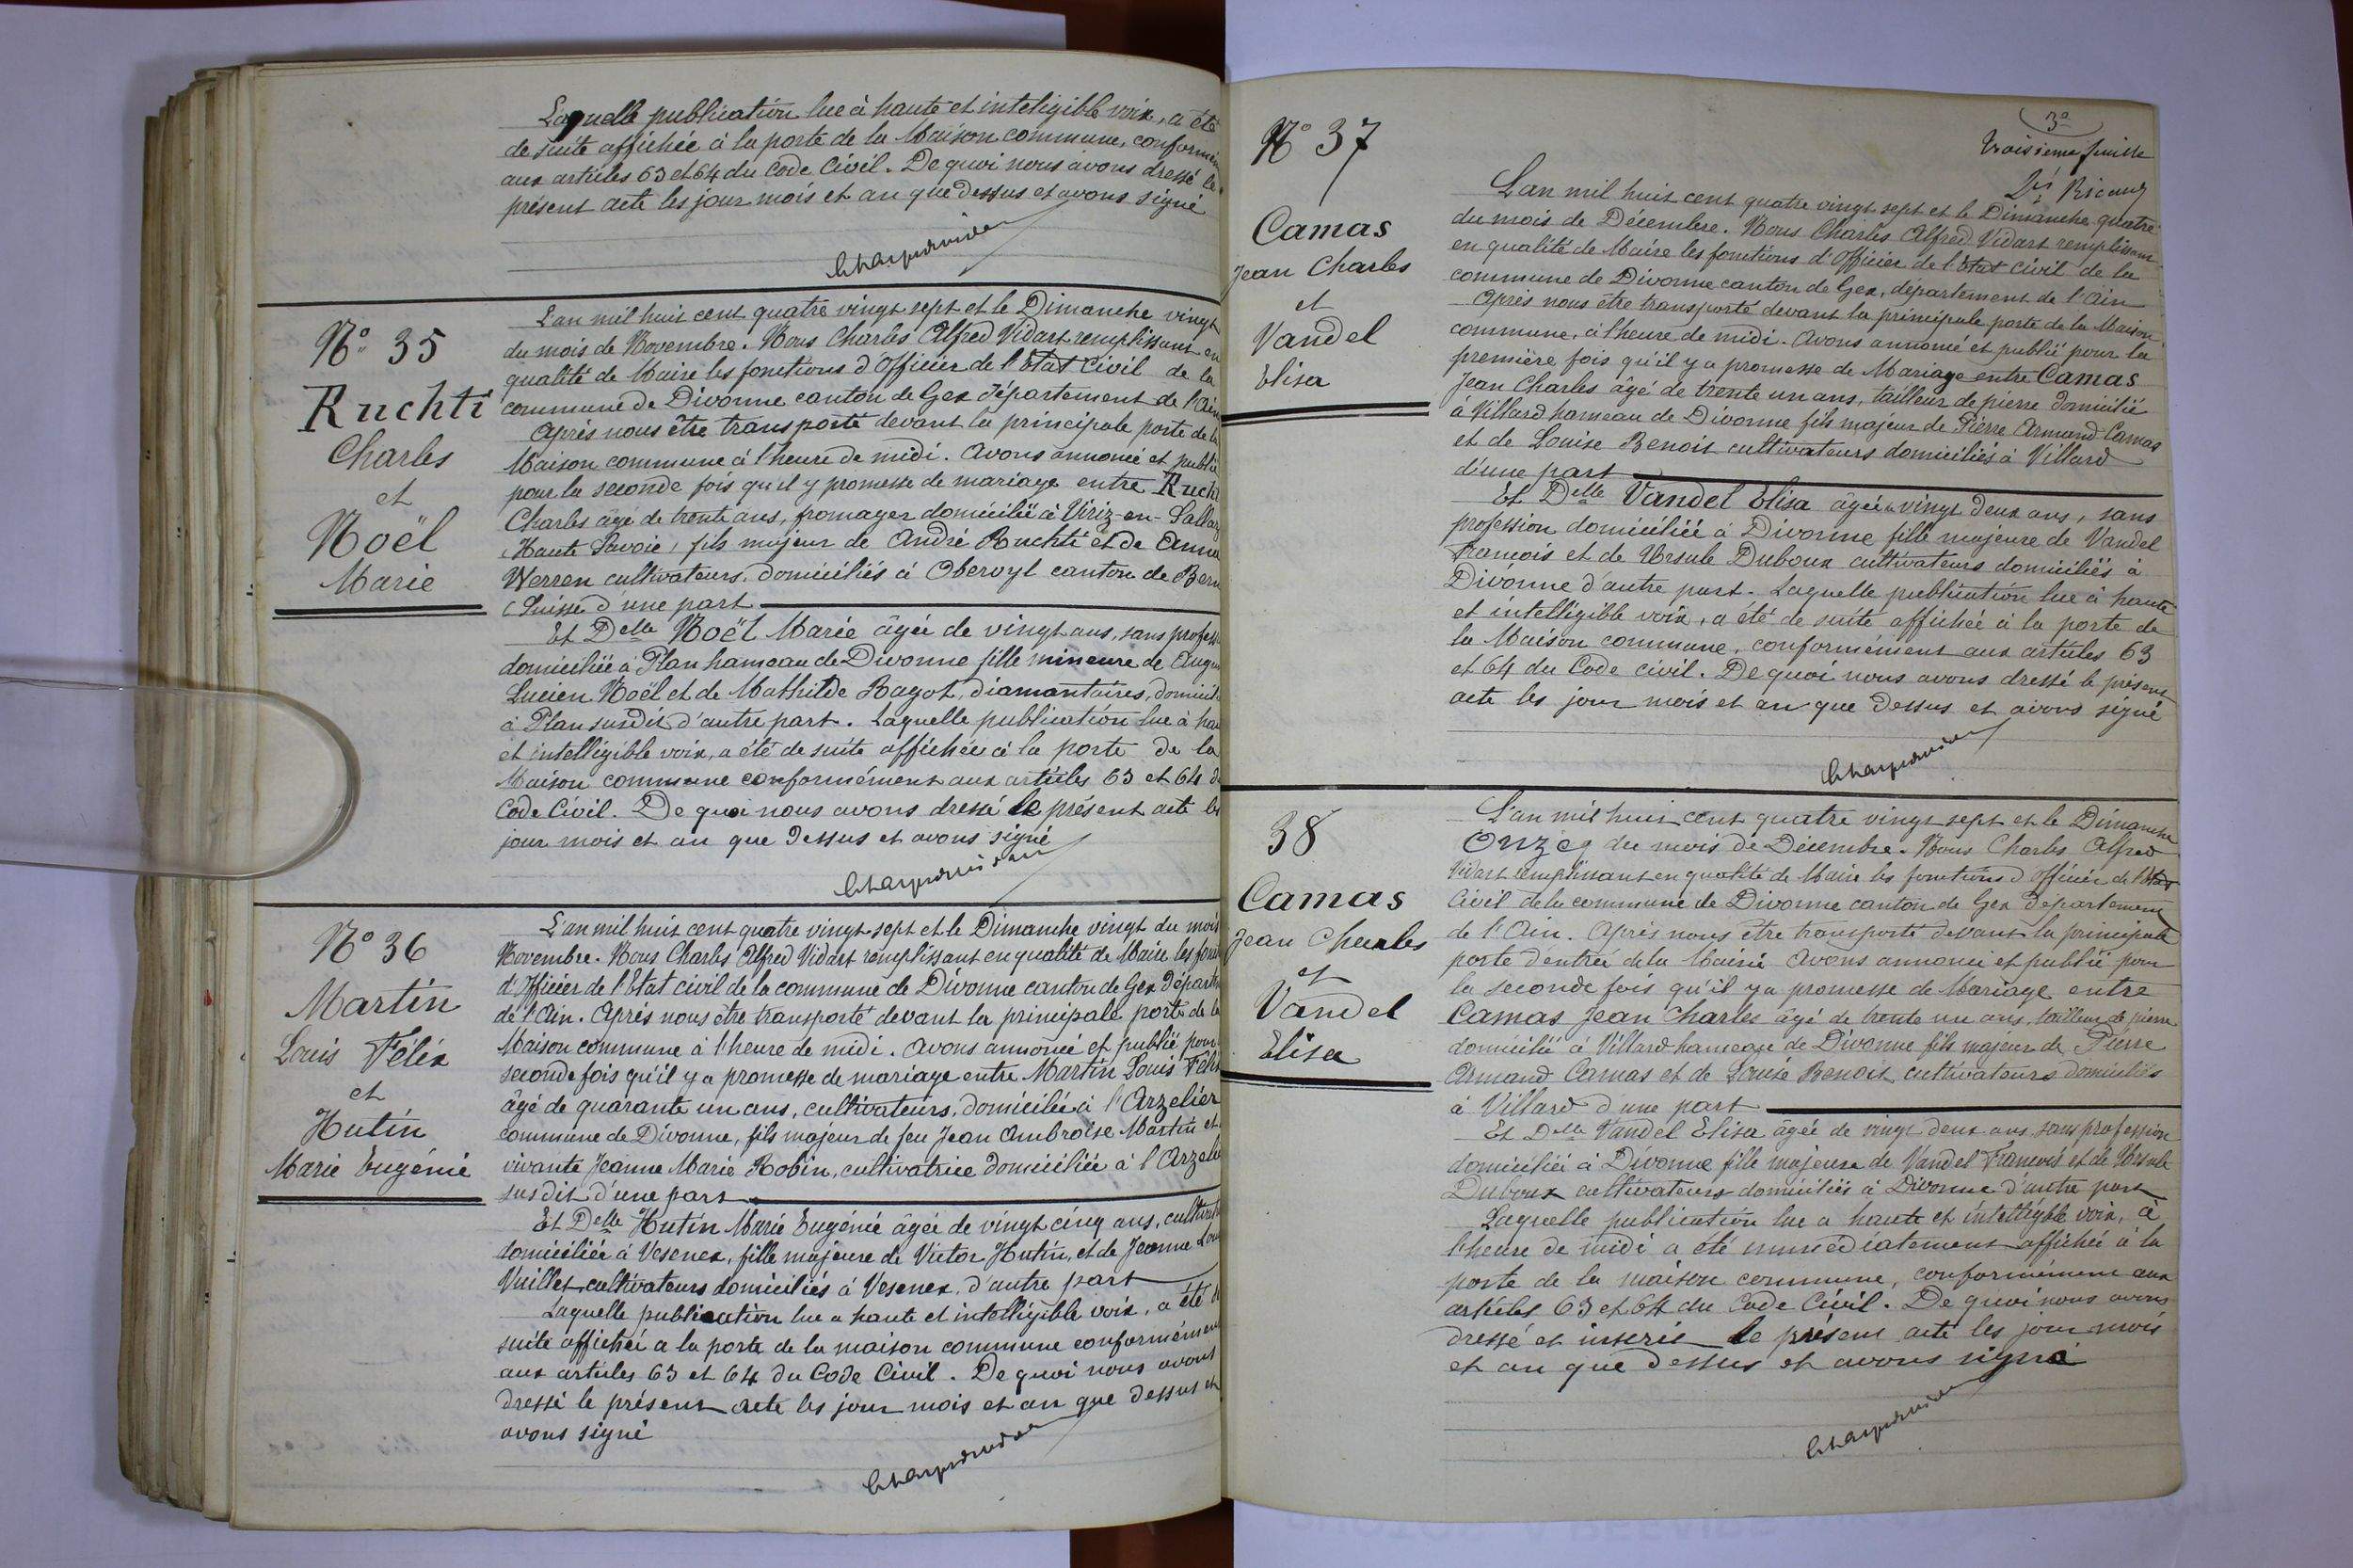 Laquelle publication lue à haute et inteligible voix, a été
de suite affichée à la porte de la Maison commune, conformém
aux articles 63 et 64 du Code Civil. De quoi nous avons dressé le
présent acte les jour mois et an que dessus et avons signé
N° 35
Ruchti
Charles
et
Noël
Marie
L'an mil huit cent quatre vingt sept et le Dimanche vingt
du mois de Novembre. Nous Charles Alfred Vidart remplissant en
qualité de Maire les fonctions d'Officier de l'Etat Civil de la
commune de Divonne canton de Gex département de l'Ain
Après nous être transporté devant la principale porte de la
Maison commune à l'heure de midi. Avons annoncé et publié
pour la seconde fois qu'il y promesse de mariage entre Ruch
Charles âgé de trente ans, fromager domicilié à Viriz-en-Sallaz
(Haute Savoie) fils majeur de André Ruchti et de Anna
Werren cultivateurs, domiciliés à Obervyl canton de Bern
(Suisse d'une part
Et Delle Noël Marie âgée de vingt ans, sans profess
domiciliée à Plan hameau de Divonne fille mineure de Augus
Lucien Noël et de Mathilde Ragot, diamantaires, domicil
à Plan susdit d'autre part. Laquelle publication lue à hau
et intelligible voix, a été de suite affichée à la porte de la
Maison commune conformément aux articles 63 et 64 d
Code Civil. De quoi nous avons dressé le présent acte les
jour mois et an que dessus et avons signé
N° 36
Martin
Louis Félix
et
Hutin
Marie Eugénie
L'an mil huit cent quatre vingt sept et le Dimanche vingt du mois
Novembre. Nous Charles Alfred Vidart remplissant en qualité de Maire les fonct
d'Officier de l'Etat civil de la commune de Divonne canton de Gex Départ
de l'Ain. Après nous être transporté devant la principale porte de la
Maison commune à l'heure de midi. Avons annoncé et publié pour
seconde fois qu'il y a promesse de mariage entre Martin Louis Félix
âgé de quarante un ans, cultivateurs, domicilié à l'Arzelier
commune de Divonne, fils majeur de feu Jean Ambroise Martin et
vivante Jeanne Marie Robin, cultivatrice domiciliée à l'Arzelie
susdit d'une part
Et Delle Hutin Marie Eugénie âgée de vingt cinq ans, cultivat
domiciliée à Vesenex, fille majeure de Victor Hutin, et de Jeanne Lou
Vuillet cultivateurs domiciliés à Vesenex, d'autre part
Laquelle publication lue a haute et intelligible voix, a été d
suite affichée a la porte de la maison commune conformément
aux articles 63 et 64 du Code Civil. De quoi nous avons
dressé le présent acte les jour mois et an que dessus et
avons signé
3e
Troisième feuille
N° 37
Camas
Jean Charles
et
Vandel
Elisa
L'an mil huit cent quatre vingt sept et le Dimanche quatre
du mois de Décembre. Nous Charles Alfred Vidart remplissant
en qualité de Maire les fonctions d'Officier de l'Etat civil de la
commune de Divonne canton de Gex, département de l'Ain
Après nous être transporté devant la principale porte de la Maison
commune, à l'heure de midi. Avons annoncé et publié pour la
première fois qu'il y a promesse de Mariage entre Camas
Jean Charles âgé de trente un ans, tailleur de pierre domicilié
à Villard hameau de Divonne fils majeur de Pierre Armand Camas
et de Louise Benoit cultivateurs domiciliés à Villard
d'une part
Et Delle Vandel Elisa âgée vingt deux ans, sans
profession domiciliée à Divonne fille majeure de Vandel
François et de Ursule Duboux cultivateurs domiciliés à
Divonne d'autre part. Laquelle publication lue à haute
et intelligible voix, a été de suite affichée à la porte de
la Maison commune, conformément aux articles 63
et 64 du Code civil. De quoi nous avons dressé le présent
acte les jour mois et an que dessus et avons signé
38
Camas
Jean Charles
et
Vandel
Elisa
L'an mil huit cent quatre vingt sept et le Dimanche
Onze du mois de Décembre. Nous Charles Alfred
Vidart remplissant en qualité de Maire les fonctions d'Officier de l'Etat
Civil de la commune de Divonne canton de Gex département
de l'Ain. Après nous être transporté devant la principale
porte d'entrée de la Mairie Avons annoncé et publié pour
la seconde fois qu'il y a promesse de Mariage entre
Camas Jean Charles âgé de trente un ans, tailleur de pierre
domicilié à Villard hameau de Divonne fils majeur de Pierre
Armand Camas et de Louise Benoit cultivateurs domiciliés
à Villard d'une part
Et Delle Vandel Elisa âgée de vingt deux ans sans profession
domiciliée à Divonne fille majeure de Vandel François et de Ursule
Duboux cultivateurs domiciliés à Divonne d'autre part
Laquelle publication lue a haute et intelligible voix, à
l'heure de midi a été immédiatement affichée à la
porte de la maison commune, conformément aux
articles 63 et 64 du Code Civil. De quoi nous avons
dressé et inscrit le présent acte les jour mois
et an que dessus et avons signé